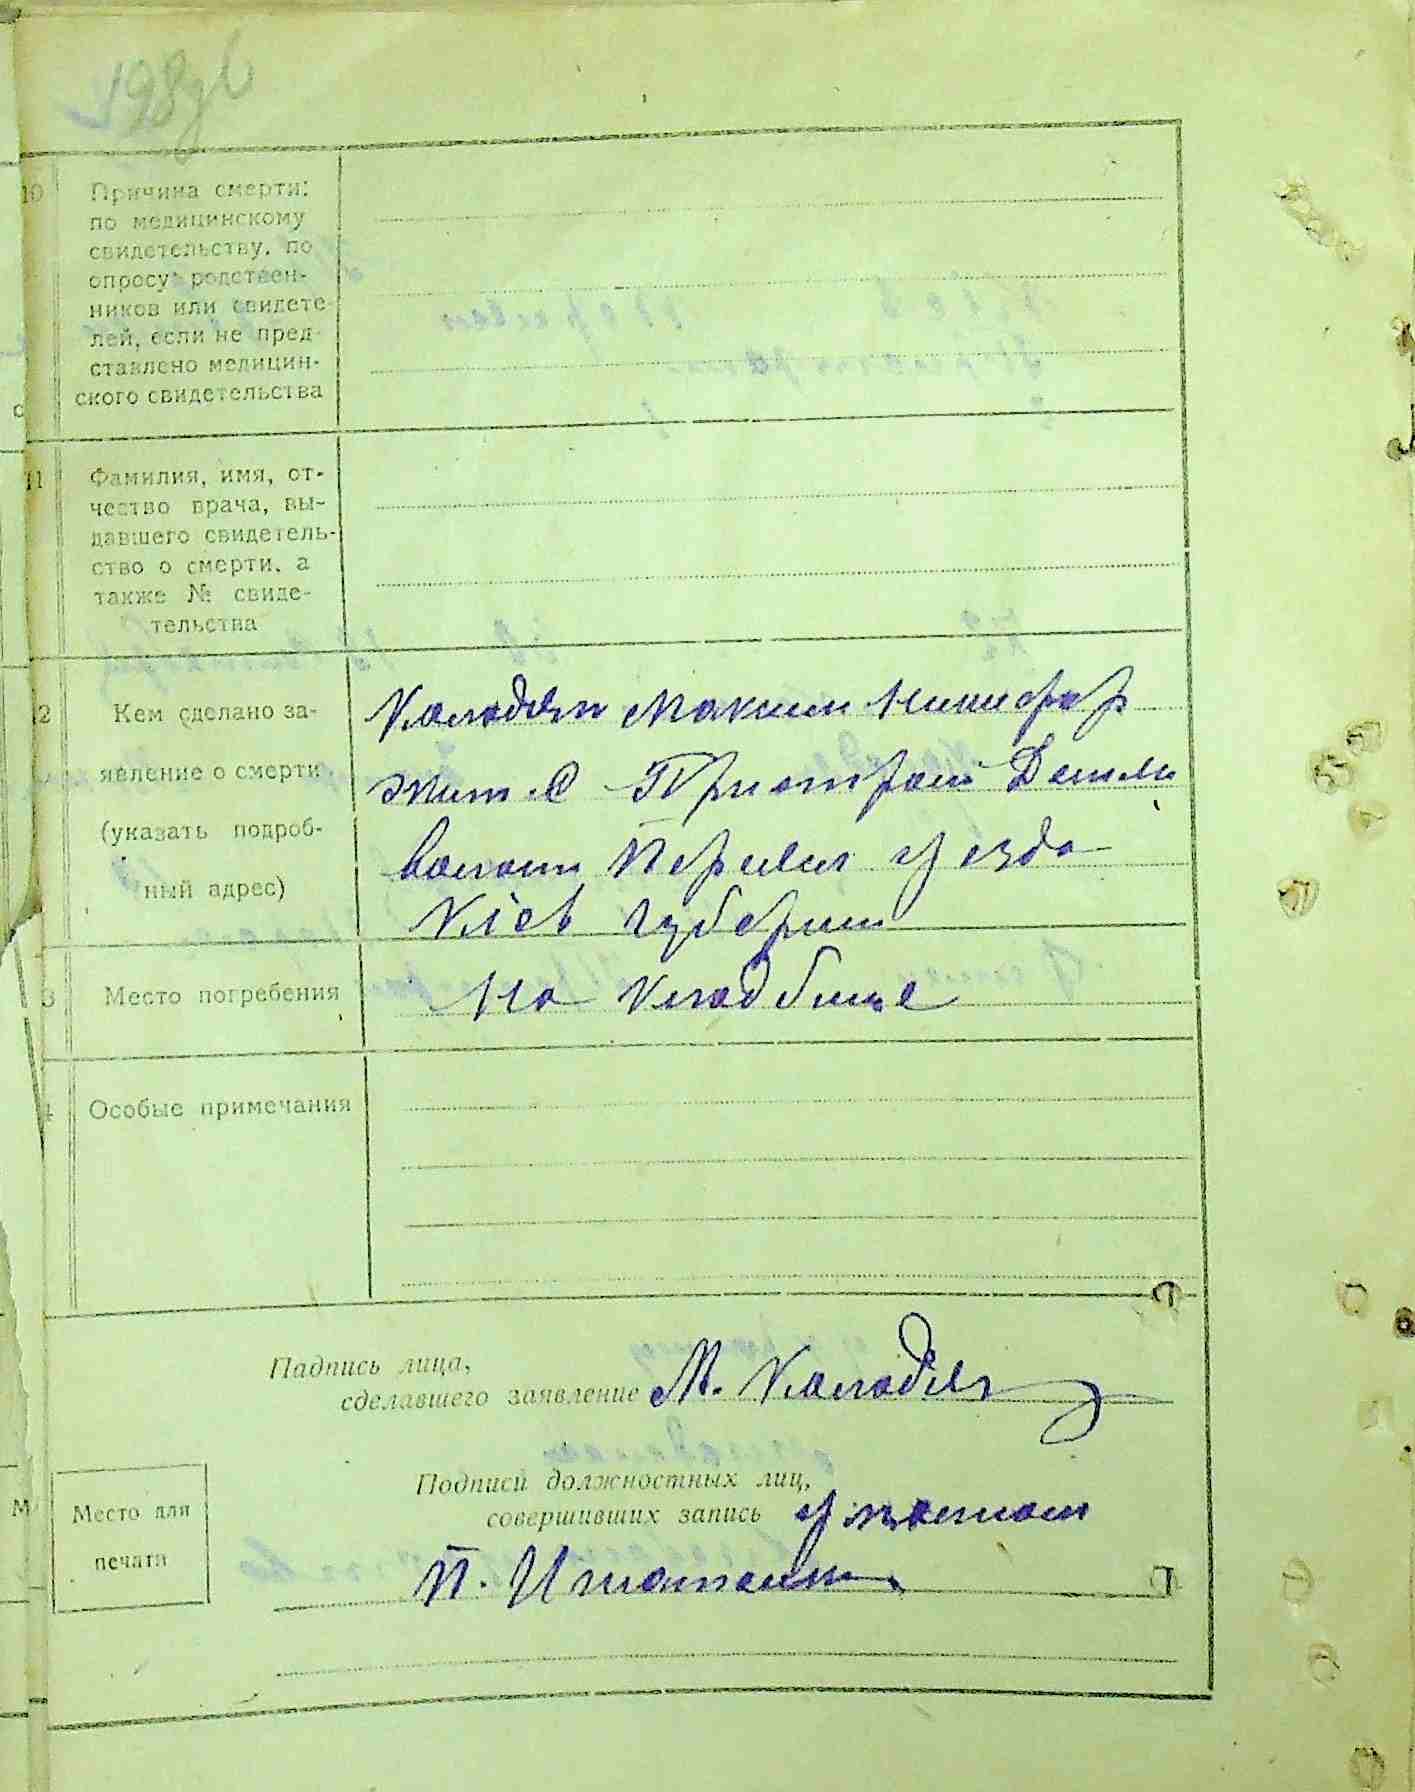 198
10
Причина смерти:
по медицинскому
свидетельству, по
опросу родствен-
ников или свидете
лей, если не пред-
ставлено медицин-
ского свидетельства
11
Фамилия, имя, от-
чество врача, вы-
давшего свидетель-
ство о смерти, а
также № свиде-
тельства
2
Кем сделано за-
явление о смерти
(указать подроб-
ный адрес)
Калодяж Максим Никифор
жит. с
волости Переясл уезда
Киев губернии
3
Место погребения
На кладбище
4
Особые примечания
Падпись лица,
сделавшего заявление М.
Подписи должностных лиц,
совершивших запись
П. Игнатенко
М
Место для
печати